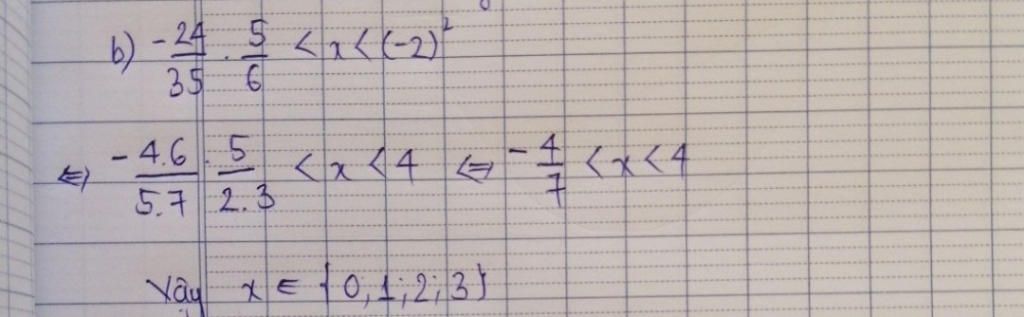 b) -24/35 . 5/6 < x < (-2)²
⇔ -4.6/5.7 . 5/2.3 < x < 4 ⇔ -4/7 < x < 4
Vậy x ∈ {0; 1; 2; 3}